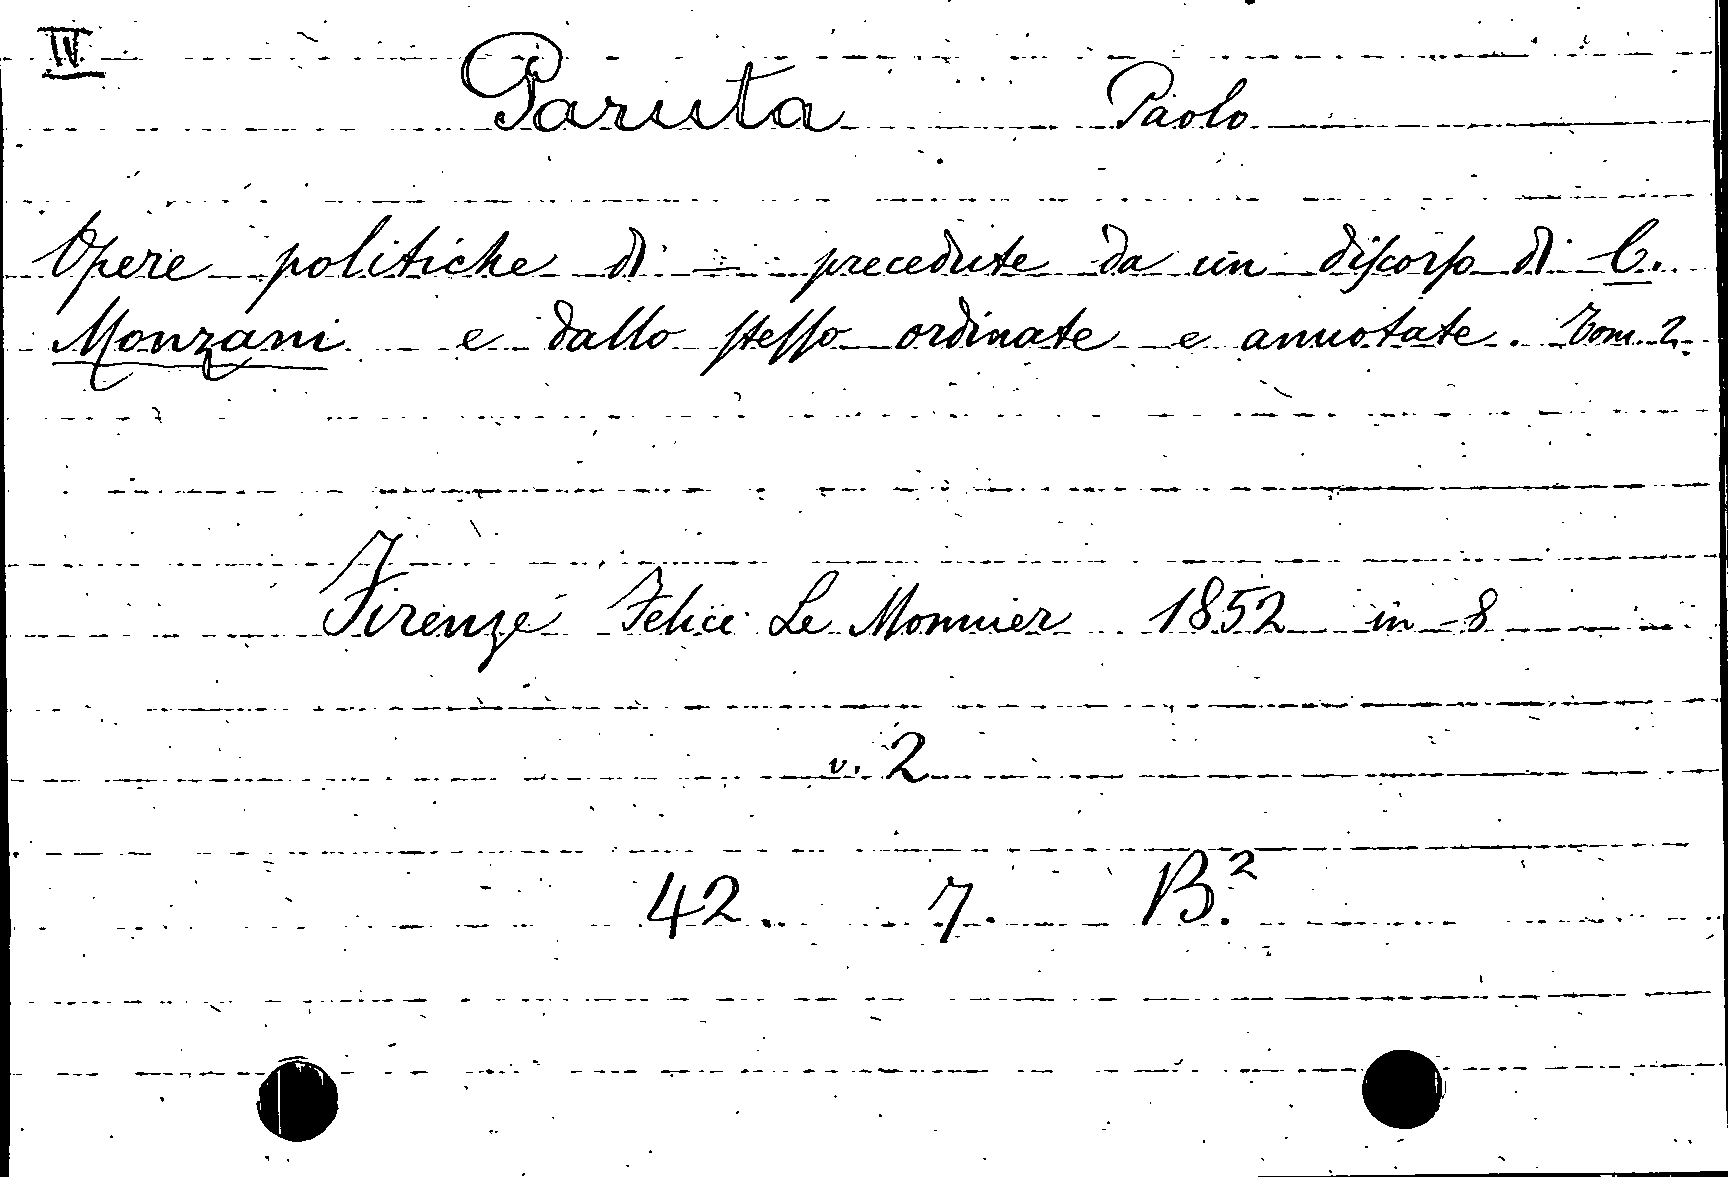 IV.
Paruta Paolo
Opere politiche di — precedute da un discorso di C.
Monzani e dallo stesso ordinate e annotate. Tom. 2.
Firenze Felice Le Monnier 1852 in 8
v. 2
42. 7. B.²